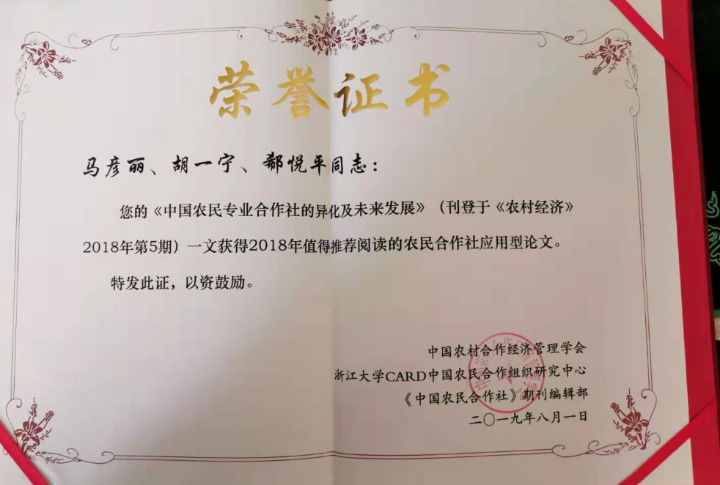 荣誉证书
马彦丽、胡一宁、郗悦平同志：
您的《中国农民专业合作社的异化及未来发展》（刊登于《农村经济》
2018年第5期）一文获得2018年值得推荐阅读的农民合作社应用型论文。
特发此证，以资鼓励。
中国农村合作经济管理学会
浙江大学CARD中国农民合作组织研究中心
《中国农民合作社》期刊编辑部
二〇一九年八月一日